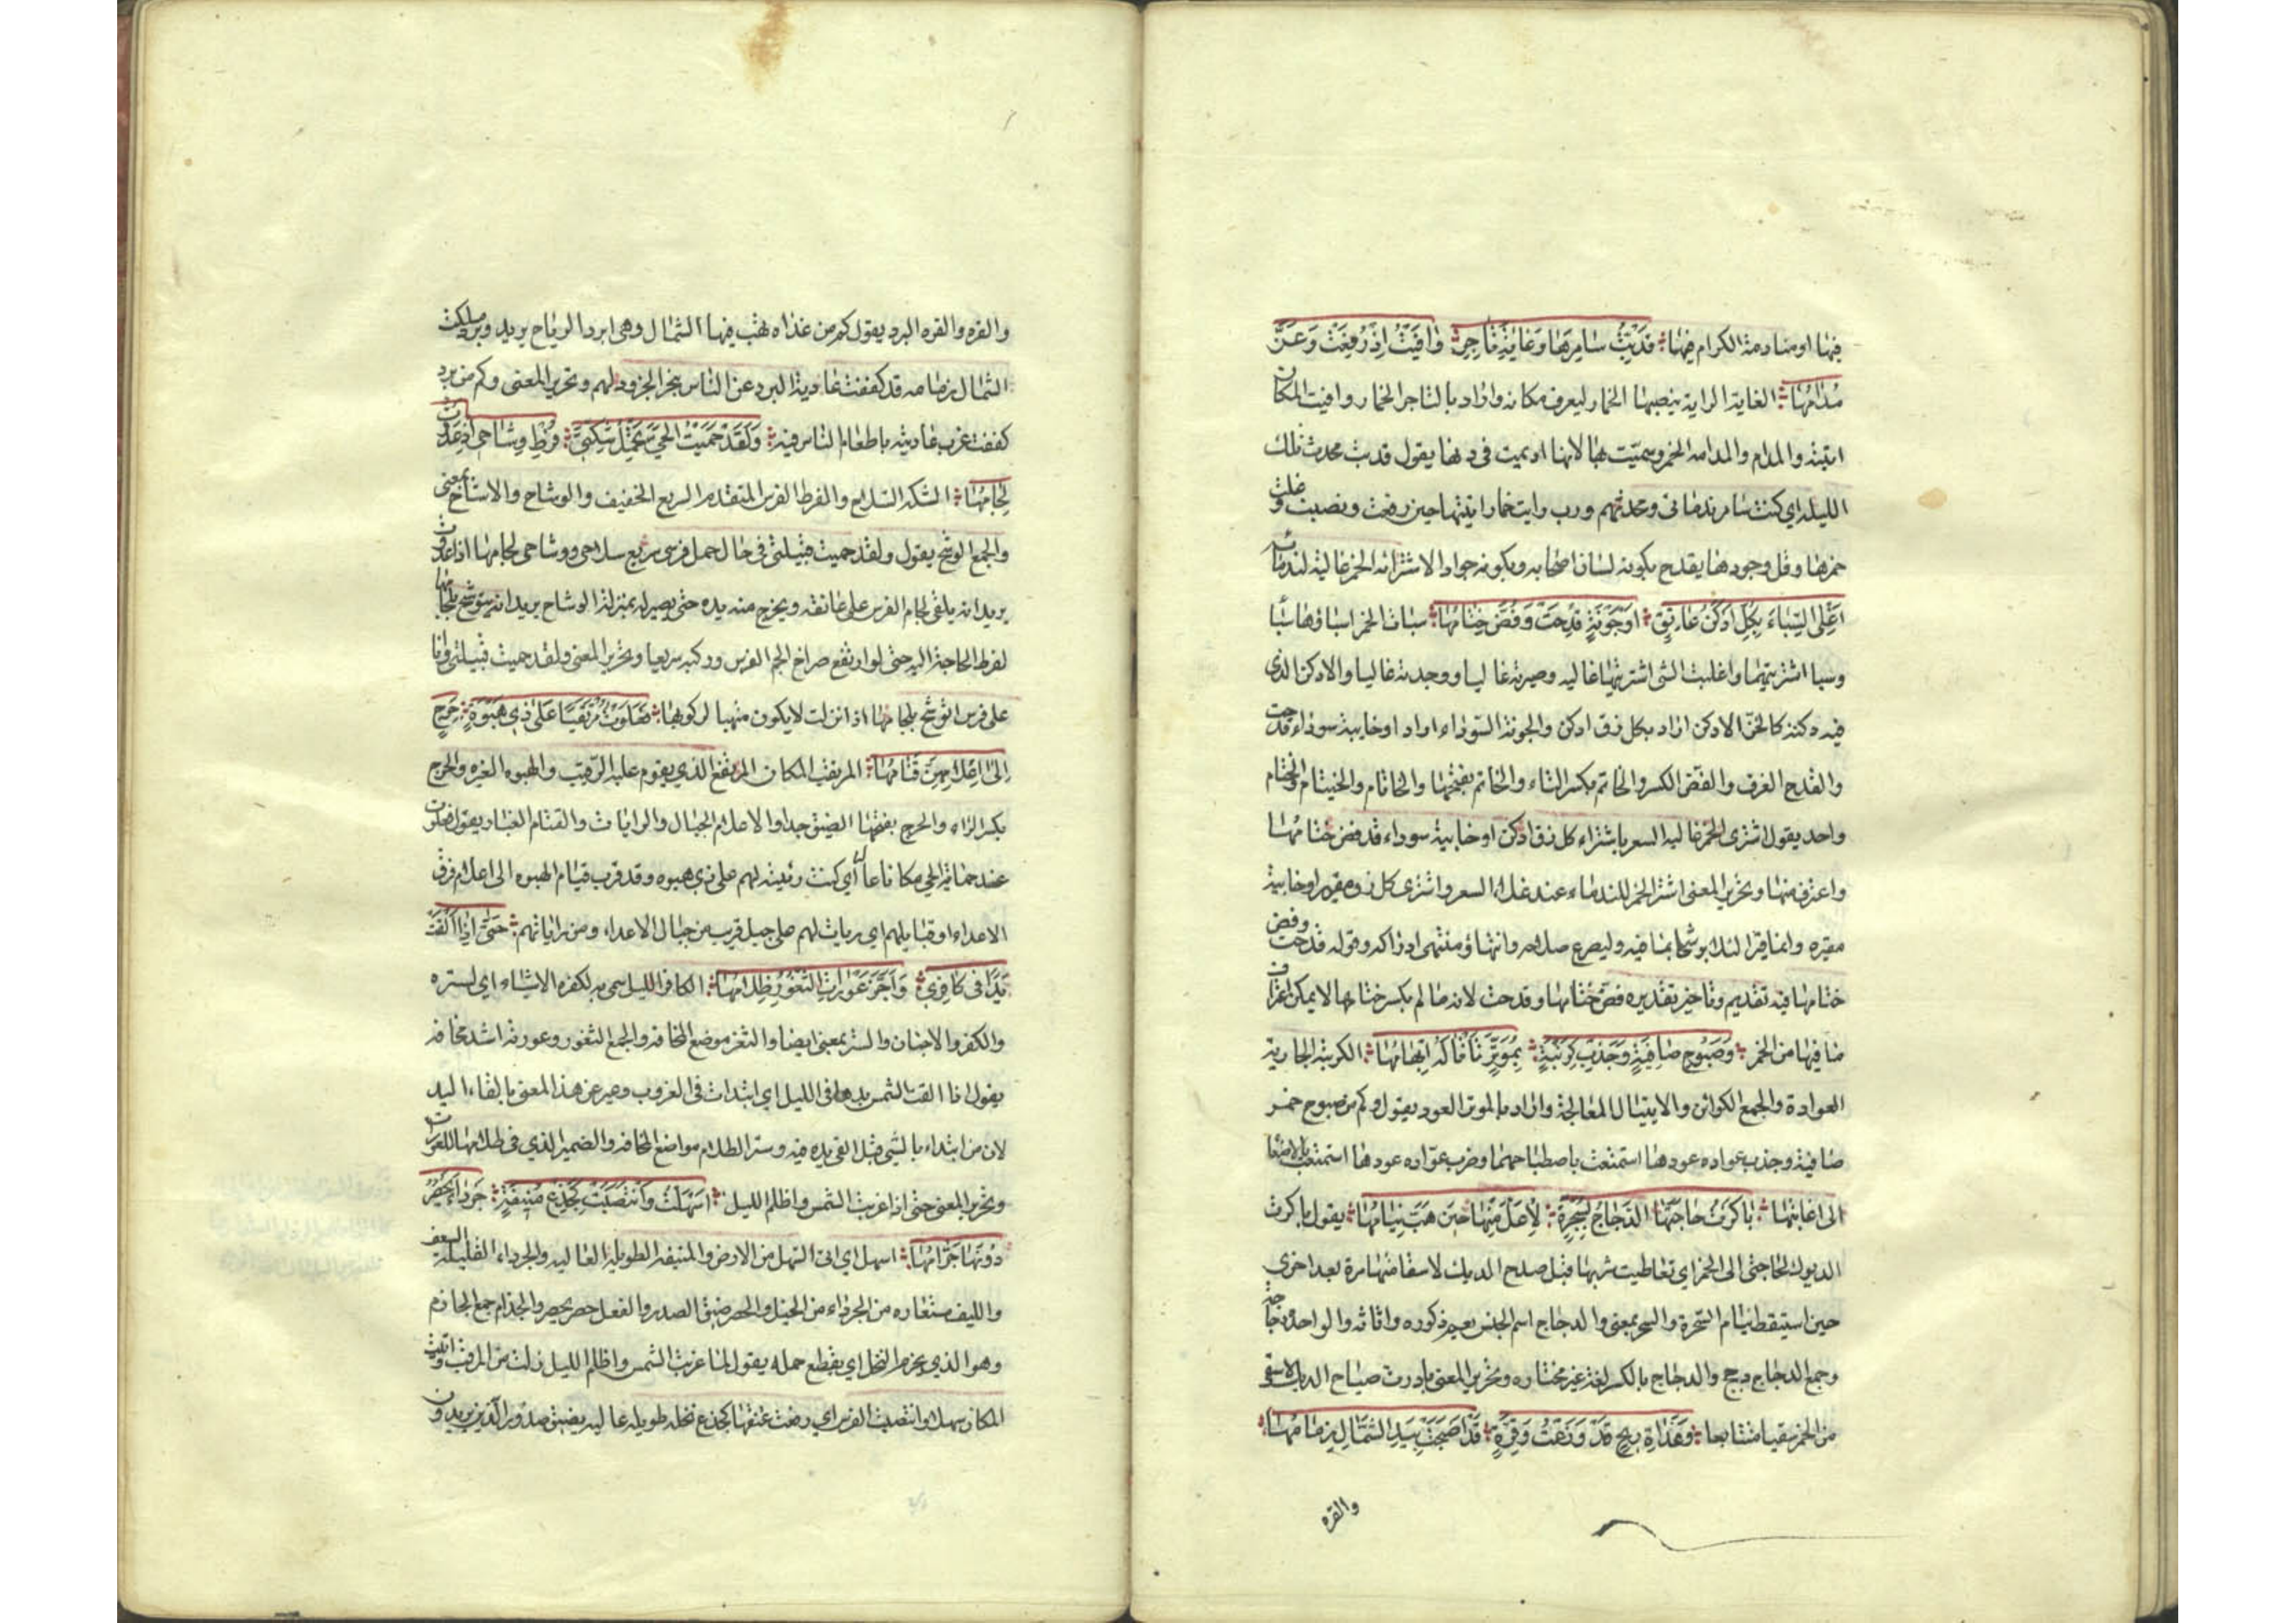 فيها او منادمة الكرام فيها قد بت سامرها وغاية تاجر وافيت اذ رفعت وعز
مدامها الغاية الراية ينصبها الخمار ليعرف مكانه واراد بالتاجر الخمار وافيت المكان
اتيته والمدام والمدامه الخمر وسميت بها لانها اديمت في دنها يقول قد بت محدث تلك
الليله اي كنت سامر ندماني ومحدثهم ورب راية خمار اتيتها حين رفعت ونصبت وغلت
خمرها وقل وجودها يتمدح بكونه لسان اصحابه وبكونه جوادا لاشترائه الخمر غالية لندمائه
اغلي السباء بكل ادكن عاتق او جونة قدحت وفض ختامها سبات الخمر اسباؤها سبا
وسبا اشتريتها واغليت الشي اشتريتها غاليه وصيرته غاليا ووجدته غاليا والادكن الذي
فيه دكنة كالخز الادكن اراد بكل زق ادكن والجونة السوداء اراد او خابية سوداء قدحت
والقدح الغرف والفض الكسر والخاتم بكسر التاء والخاتم بفتحها والخاتام والخيتام والختام
واحد يقول اشتري الخمر غاليه السعر باشتراء كل زق ادكن او خابية سوداء قد فض ختامها
واغترف منها وتحرير المعنى اشتر الخمر للندماء عند غلاء السعر واشتري كل زق مقير او خابية
مقيره وانما قيرا لئلا يرشحا بما فيه وليسرع صلاحه وانتهاؤه منتهى ادراكه وقوله قدحت وفض
ختامها فيه تقديم وتاخير تقديره فض ختامها وقدحت لانه ما لم يكسر ختامها لا يمكن اغتراف
ما فيها من الخمر وصبوح صافية وجذب كرينة بموتر تاتاله ابهامها الكرينة الجارية
العوادة والجمع الكرائن والايتيال المعالجة واراد بالموتر العود يقول وكم من صبوح خمر
صافية وجذب عواده عودها استمتعت باصطباحها وضرب عواده عودها استمتعت بالاصغا
الى اغانيها باكرت حاجتها الدجاج بسحرة لاعل منها حين هب نيامها يقول باكرت
الديوك لحاجتي الى الخمر اي تعاطيت شربها قبل صدح الديك لاسقا منها مرة بعد اخرى
حين استيقظ نيام السحرة والسحر بمعنى والدجاج اسم الجنس يعم ذكوره واناثه والواحدة دجاجة
وجمع الدجاج دجج والدجاج بالكسر لغة غير مختاره وتحرير المعنى بادرت صياح الديك لاسقى
من الخمر سقيا متتابعا وغداة ريح قد وزعت وقرة قد اصبحت بيد الشمال زمامها
والقره
والقره والقره البرد يقول كم من غداه تهب فيها الشمال وهي ابرد الرياح يريد وبرد ملكت
الشمال بزمامه قد كففت عادية البرد عن الناس بنحر الجزور لهم وتحرير المعنى وكم من برد
كففت غرب عاديته باطعام الناس فيه ولقد حميت الحي تحمل شكتي فرط وشاحي اذ غدوت
لجامها الشكه السلاح والفرط الفرس المتقدم السريع الخفيف والوشاح والاشاح بمعنى
والجمع الوشح يقول ولقد حميت قبيلتي في حال حمل فرسي سريع سلاحي ووشاحي لجامها اذا غدوت
يريد انه يلقي لجام الفرس على عاتقه ويخرج منه يده حتى يصير له بمنزلة الوشاح يريد انه يتوشح بلجامها
لفرط الحاجة اليه حتى لو ارتفع صراخ الجم الفرس وركبه سريعا وتحرير المعنى ولقد حميت قبيلتي وانا
على فرس اتوشح بلجامها اذا نزلت لاكون متهيا لركوبها فعلوت مرتقبا على ذي هبوة حرج
الى اعلامهن قتامها المرتقب المكان المرتفع الذي يقوم عليه الرقيب والهبوه الغبره والحرج
بكسر الراء والحرج بفتحها الضيق جدا والاعلام الجبال والرايات والقتام الغبار يقول فعلوت
عند حماية الحي مكانا عاليا اي كنت ربيئه لهم على ذي هبوه وقد قرب قتام الهبوه الى اعلام فرق
الاعداء او قبايلهم اي ربات لهم على جبل قريب من جبال الاعداء ومن راياتهم حتى اذا القت
يدا في كافر واجن عورات الثغور ظلامها الكافر الليل سمي به لكفره الاشياء اي لستره
والكفر والاجنان والستر بمعنى ايضا والثغر موضع المخافه والجمع الثغور وعورته اشد مخافة
يقول اذا القت الشمس يدها في الليل اي ابتدات في الغروب وعبر عن هذا المعنى بالقاء اليد
لان من ابتداء بالشي قيل القى يده فيه وستر الظلام مواضع المخافه والضمير الذي في ظلامها للعورات
وتحرير المعنى حتى اذا غربت الشمس واظلم الليل اسهلت وانتصبت كجذع منيفة جرداء يحصر
دونها جرامها اسهل اي اتى السهل من الارض والمنيفه الطويله العاليه والجرداء القليلة السعف
والليف مستعاره من الجرداء من الخيل والحصر ضيق الصدر والفعل حصر يحصر والجرام جمع الجارم
وهو الذي يجرم النخل اي يقطع حمله يقول لما غربت الشمس واظلم الليل نزلت من المرقب واتيت
المكان سهلا وانتصبت الفرس اي رفعت عنقها كجذع نخله طويله عاليه يضيق صدور الذين يريدون